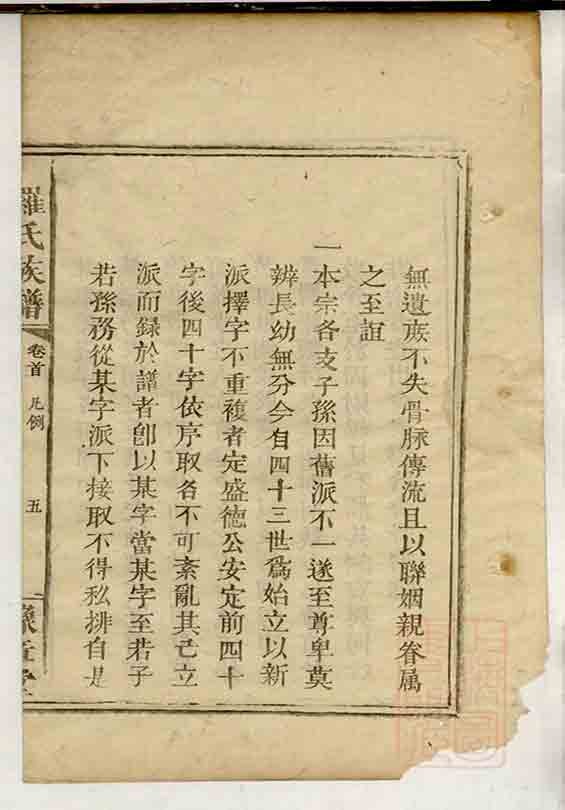 無遺庶不失骨脉傳流且以聯姻親眷属
之至誼
一本宗各支子孫因舊派不一遂至尊卑莫
辨長幼無分今自四十三世爲始立以新
派擇字不重複者定盛德公安定前四十
字後四十字依序取名不可紊亂其己立
派而録於譜者卽以某字當某字至若子
若孫務從某字派下接取不得私排自是
羅氏族譜
卷首 凡例
五